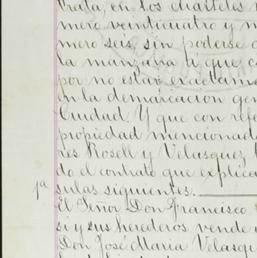 trata, en los cuarteles n
mero veinticuatro y n
mero seis, sin poderse
la manzana á que c
por no estar exactame
en la demarcación gen
Ciudad. Y que con refe
propiedad mencionada
res Rosell y Velasquez,
do el contrato que explica
sulas siguientes.
1ª El Señor Don Francisco
si y sus herederos vende
Don José María Velasqu